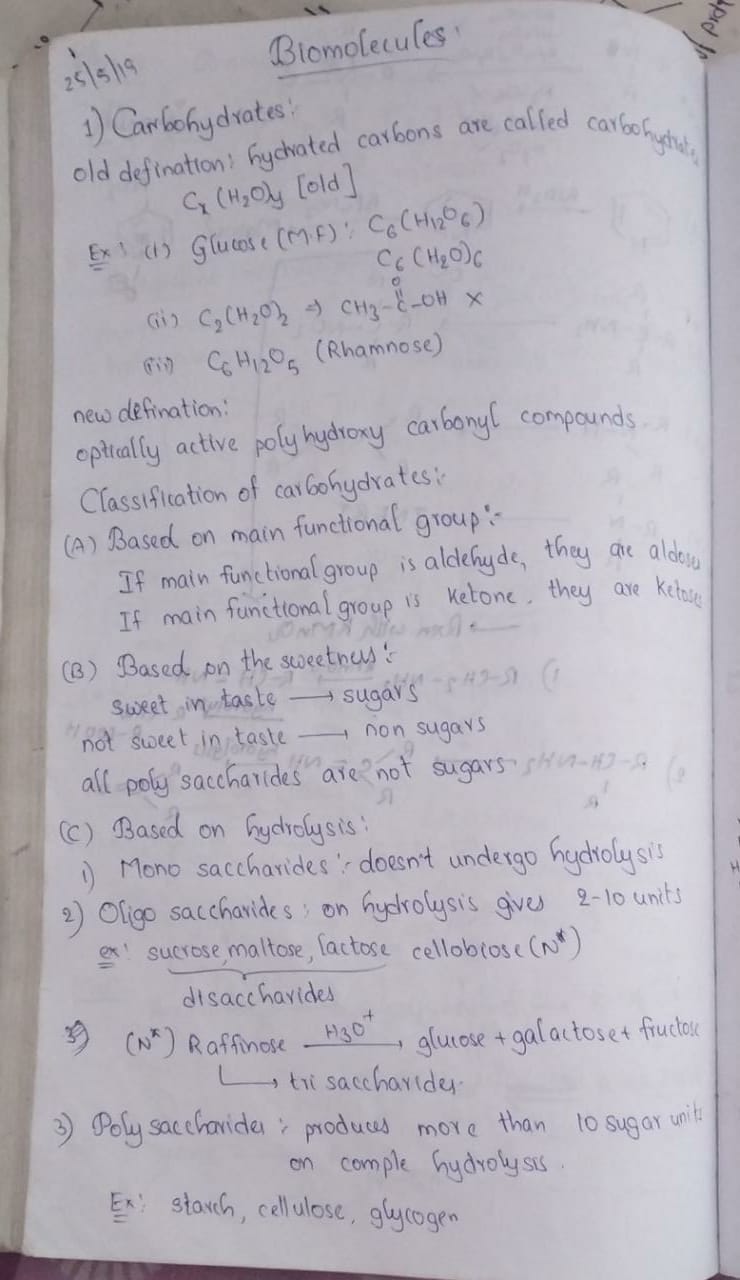 Biomolecules:
25/5/19
1) Carbohydrates:
old defination: hydrated carbons are called carbohydrate
Cx(H2O)y [old]
Ex: (i) Glucose (M.F): C6(H12O6)
C6(H2O)6
O
(ii) C2(H2O)2 ⇒ CH3-C-OH ×
(iii) C6H12O5 (Rhamnose)
new defination:
optically active polyhydroxy carbonyl compounds.
Classification of carbohydrates:-
(A) Based on main functional group:-
If main functional group is aldehyde, they are aldoses
If main functional group is ketone, they are ketoses
(B) Based on the sweetness:-
sweet in taste → sugars
not sweet in taste → non sugars
all poly saccharides are not sugars
(C) Based on hydrolysis:
1) Mono saccharides:- doesn't undergo hydrolysis
2) Oligo saccharides: on hydrolysis gives 2-10 units
ex: sucrose, maltose, lactose cellobiose (N*)
disaccharides
(N*) Raffinose H3O+ → glucose + galactose + fructose
→ tri saccharides.
3) Poly saccharides: produces more than 10 sugar units
on comple hydrolysis.
Ex: starch, cellulose, glycogen